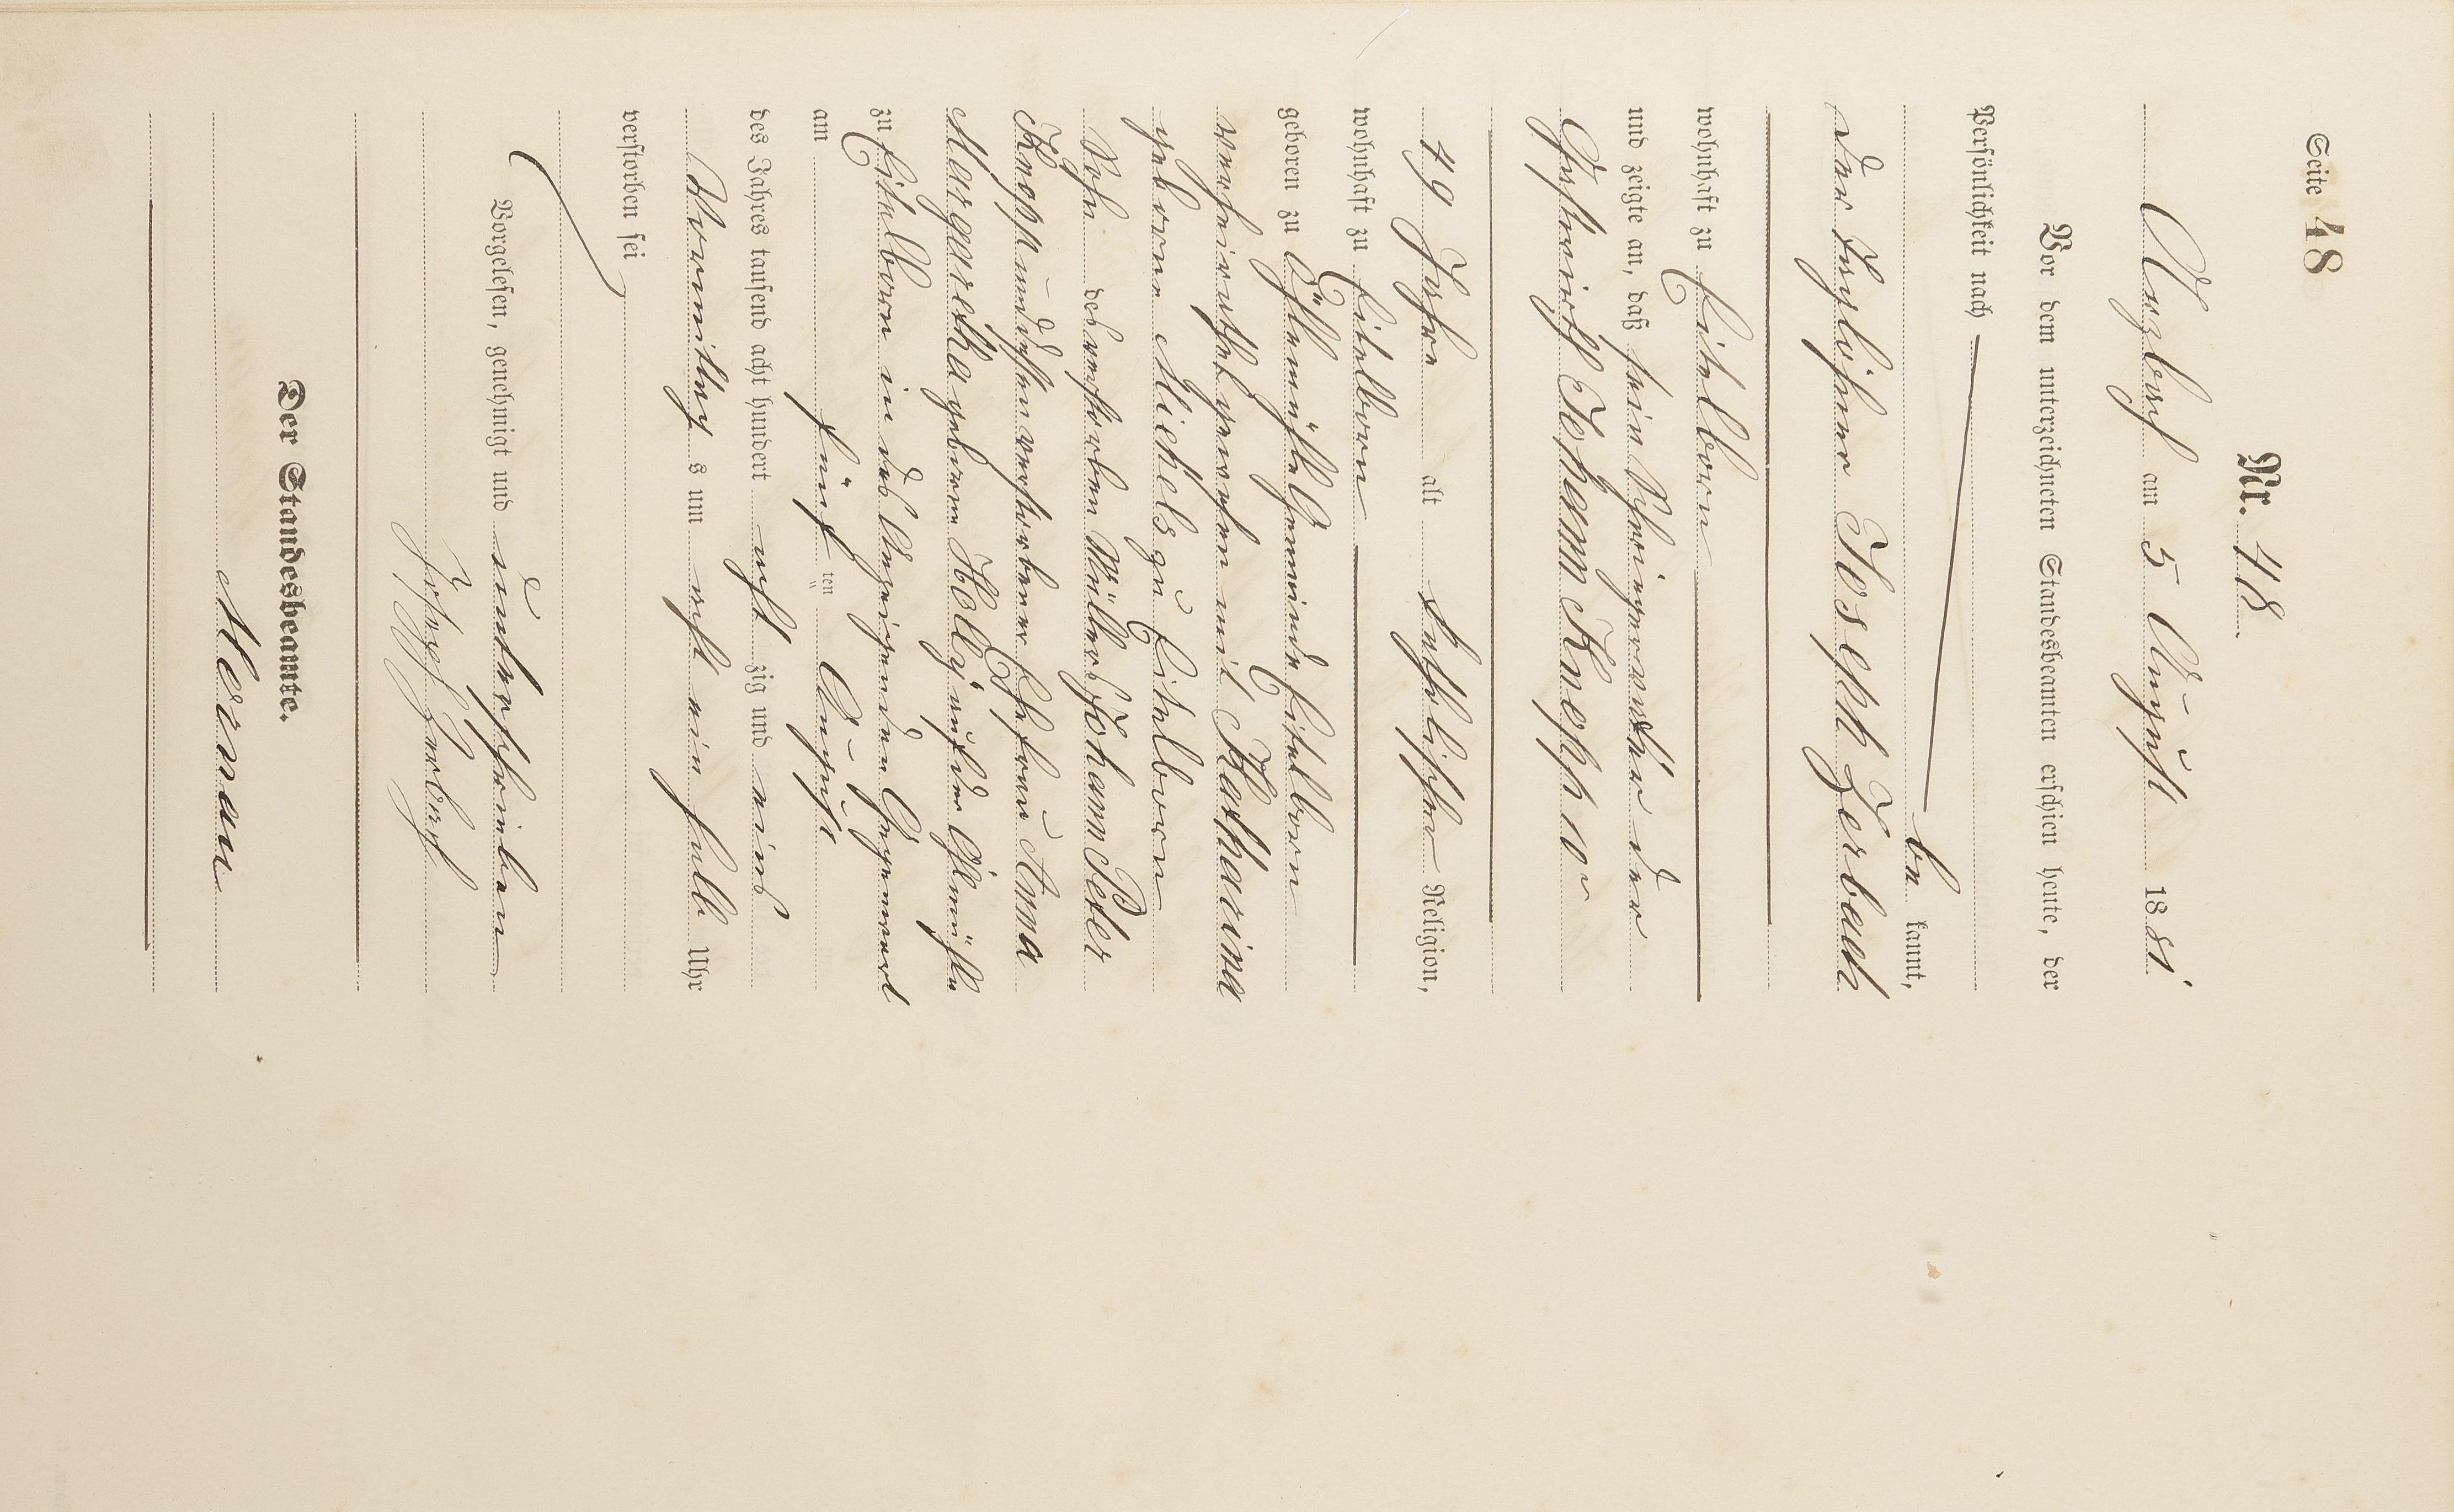 Seite 48
Nr. 48.
Arzbach am 5 August 1881.
Vor dem unterzeichneten Standesbeamten erschien heute, der
Persönlichkeit nach
be kannt,
der Taglöhner Joseph Zerbach
wohnhaft zu Eitelborn
und zeigte an, daß sein Schwiegervater der
Gastwirth Johann Knopp
49 Jahre alt katholischer Religion,
wohnhaft zu Eitelborn
geboren zu Gemeinde Eitelborn
verheirathet gewesen mit Katharina
geborene Michels zu Eitelborn
Sohn des verstorben Müllers Johann Peter
Knopp und dessen verstorbener Ehefrau Anna
Margaretha geborene auf der
zu Eitelborn in des Anzeigenden Gegenwart
am fünf ten August
des Jahres tausend acht hundert acht zig und eins
Vormittag s um acht ein halb Uhr
verstorben sei
Vorgelesen, genehmigt und unterschrieben
Joseph Zerbach
Der Standesbeamte.